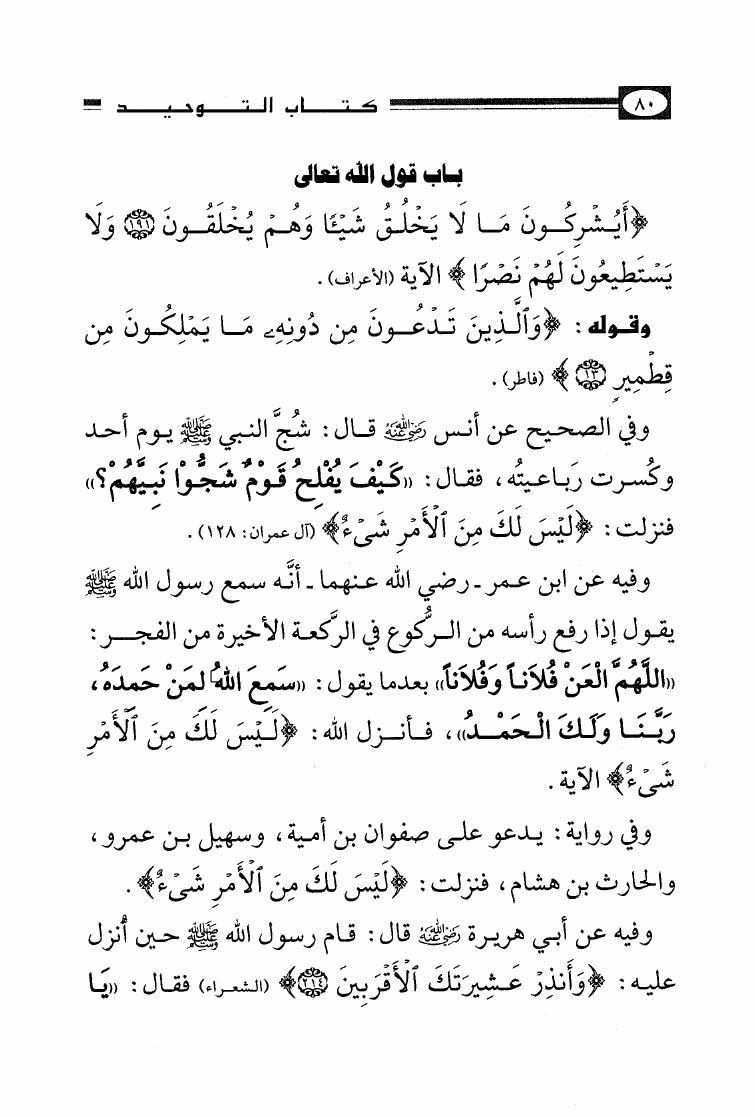 ٨٠ كتاب التوحيد
باب قول الله تعالى
﴿أَيُشْرِكُونَ مَا لَا يَخْلُقُ شَيْئًا وَهُمْ يُخْلَقُونَ ﴿١٩١﴾ وَلَا
يَسْتَطِيعُونَ لَهُمْ نَصْرًا﴾ الآية (الأعراف).
وقوله: ﴿وَٱلَّذِينَ تَدْعُونَ مِن دُونِهِۦ مَا يَمْلِكُونَ مِن
قِطْمِيرٍ ﴿١٣﴾﴾ (فاطر).
وفي الصحيح عن أنس رضي الله عنه قال: شُجَّ النبي ﷺ يوم أحد
وكُسرت رَباعيتُه، فقال: «كَيْفَ يُفْلِحُ قَوْمٌ شَجُّوْا نَبِيَّهُمْ؟»
فنزلت: ﴿لَيْسَ لَكَ مِنَ ٱلْأَمْرِ شَىْءٌ﴾ (آل عمران: ١٢٨).
وفيه عن ابن عمر ـ رضي الله عنهما ـ أنَّه سمع رسول الله ﷺ
يقول إذا رفع رأسه من الرُّكوع في الرَّكعة الأخيرة من الفجر:
«اللَّهُمَّ الْعَنْ فُلَاناً وَفُلَاناً» بعدما يقول: «سَمِعَ اللهُ لِمَنْ حَمِدَهُ،
رَبَّنَا وَلَكَ الْحَمْدُ»، فأنزل الله: ﴿لَيْسَ لَكَ مِنَ ٱلْأَمْرِ
شَىْءٌ﴾ الآية.
وفي رواية: يدعو على صفوان بن أمية، وسهيل بن عمرو،
والحارث بن هشام، فنزلت: ﴿لَيْسَ لَكَ مِنَ ٱلْأَمْرِ شَىْءٌ﴾.
وفيه عن أبي هريرة رضي الله عنه قال: قام رسول الله ﷺ حين أُنزل
عليه: ﴿وَأَنذِرْ عَشِيرَتَكَ ٱلْأَقْرَبِينَ ﴿٢١٤﴾﴾ (الشعراء) فقال: «يَا